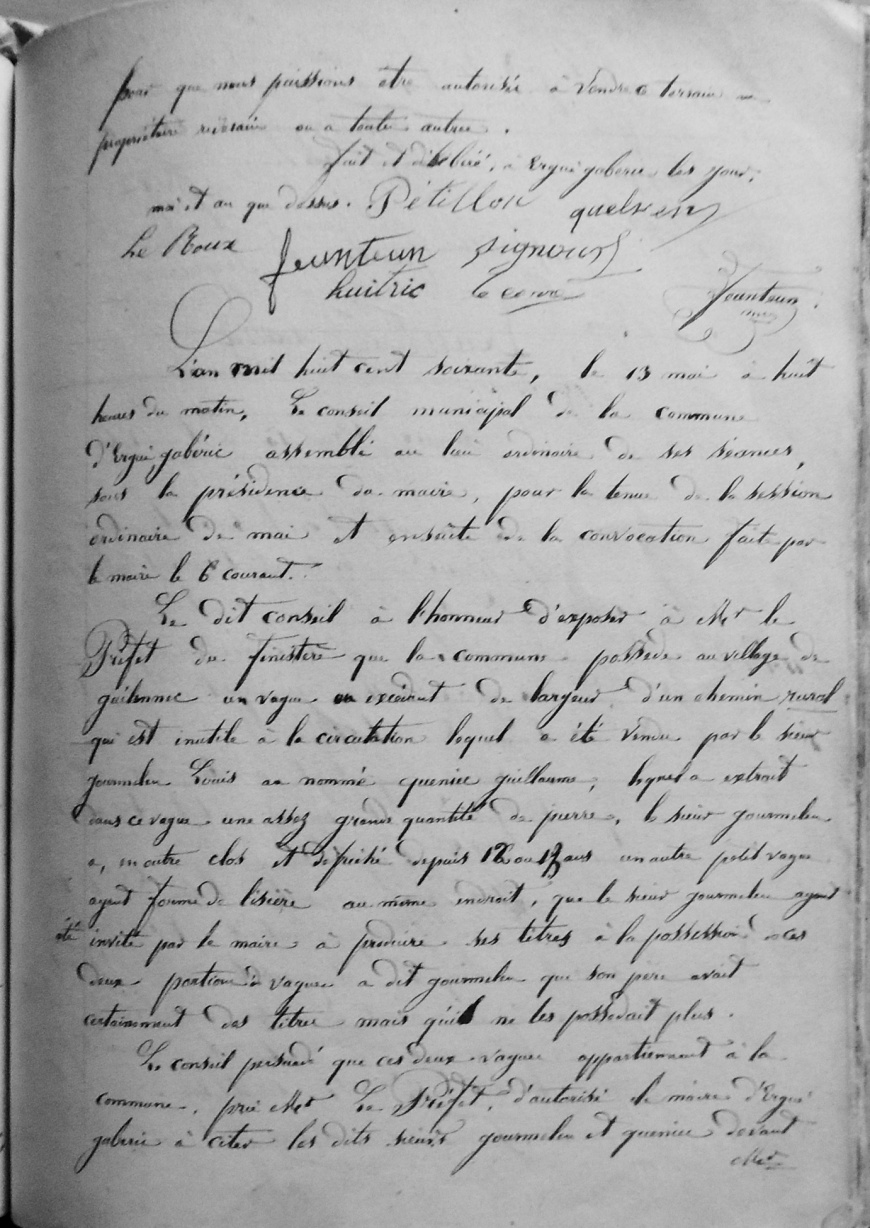 pour que nous puissions etre autorisés à vendre ce terrain au
propriétaire riverain ou a toute autre.
fait et délibéré, à Ergué gabéric les jour,
moi et an que dessus. Pétillon quelven
Le Roux feunteun Signour
huitric Le corre feunteun
L'an mil huit cent soixante, le 13 mai à huit
heures du matin, Le conseil municipal de la commune
d'Ergué gabéric assemblé au lieu ordinaire de ses séances,
sous la présidence du maire, pour la tenue de la session
ordinaire de mai et ensuite de la convocation faite par
le maire le 6 courant.
Le dit conseil à l'honneur d'exposer à Mr le
Préfet du finistère que la commune possède au village de
guilennec un vague ou excédant de largeur d'un chemin rural
qui est inutile à la circulation lequel a été vendu par le sieur
gourmelen Louis au nommé queniec guillaume, lequel a extrait
dans ce vague une assez grande quantité de pierre, le sieur gourmelen
a, en outre clos et défriché depuis ans un autre petit vague
ayant forme de lisière au même endroit, que le sieur gourmelen ayant
été invité par le maire à produire ses titres à la possession de ces
deux portions de vagues a dit gourmelen que son père avait
certainement des titres mais qu'il ne les possédait plus.
Le conseil persuadé que ces deux vagues appartiennent à la
commune, prie Mr Le Préfet, d'autorisé le maire d'Ergué
gabéric à citer les dits sieurs gourmelen et queniec devant
Mr